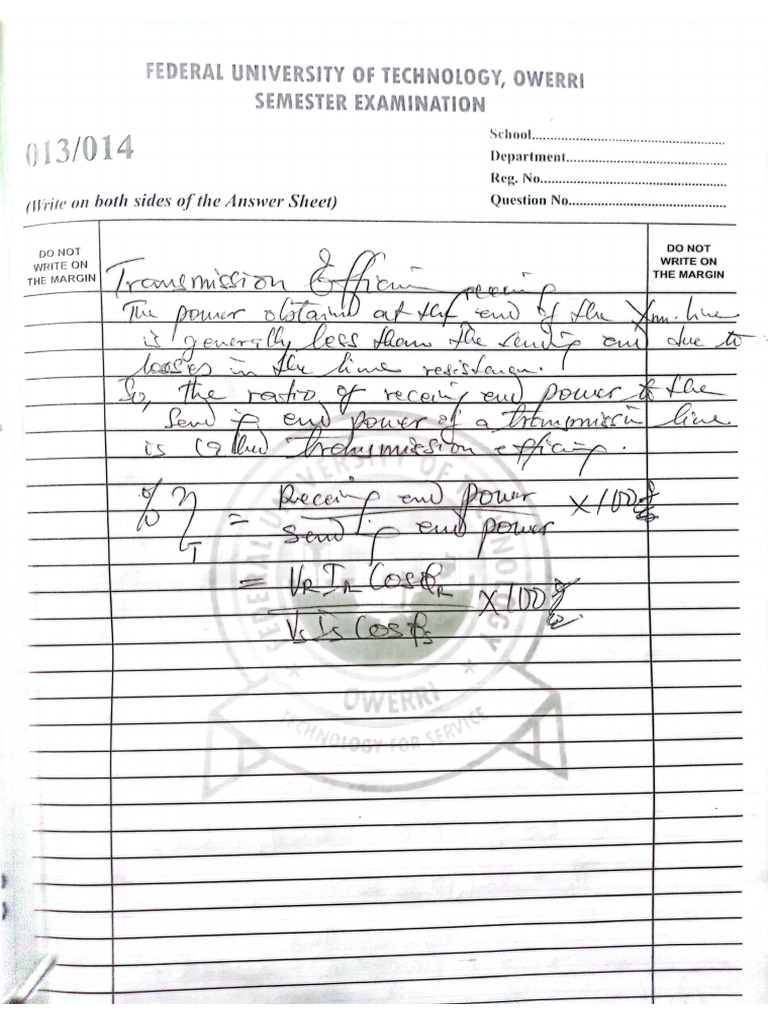 FEDERAL UNIVERSITY OF TECHNOLOGY, OWERRI
SEMESTER EXAMINATION
013/014
School
Department
Reg. No
(Write on both sides of the Answer Sheet)
Question No
DO NOT
WRITE ON
THE MARGIN
DO NOT
WRITE ON
THE MARGIN
Transmission
receiving
The power obtained at the end of the Xm. line
is generally less than the sending end due to
losses in the line resistance.
So, the ratio of receiving end power to the
Sending end power of a transmission line
is called transmission efficiency.
% η_T = Receiving end power / Sending end power × 100%
= V_R I_R Cos φ_R / V_S I_S Cos φ_S × 100%
FEDERAL UNIVERSITY OF TECHNOLOGY
OWERRI
TECHNOLOGY FOR SERVICE